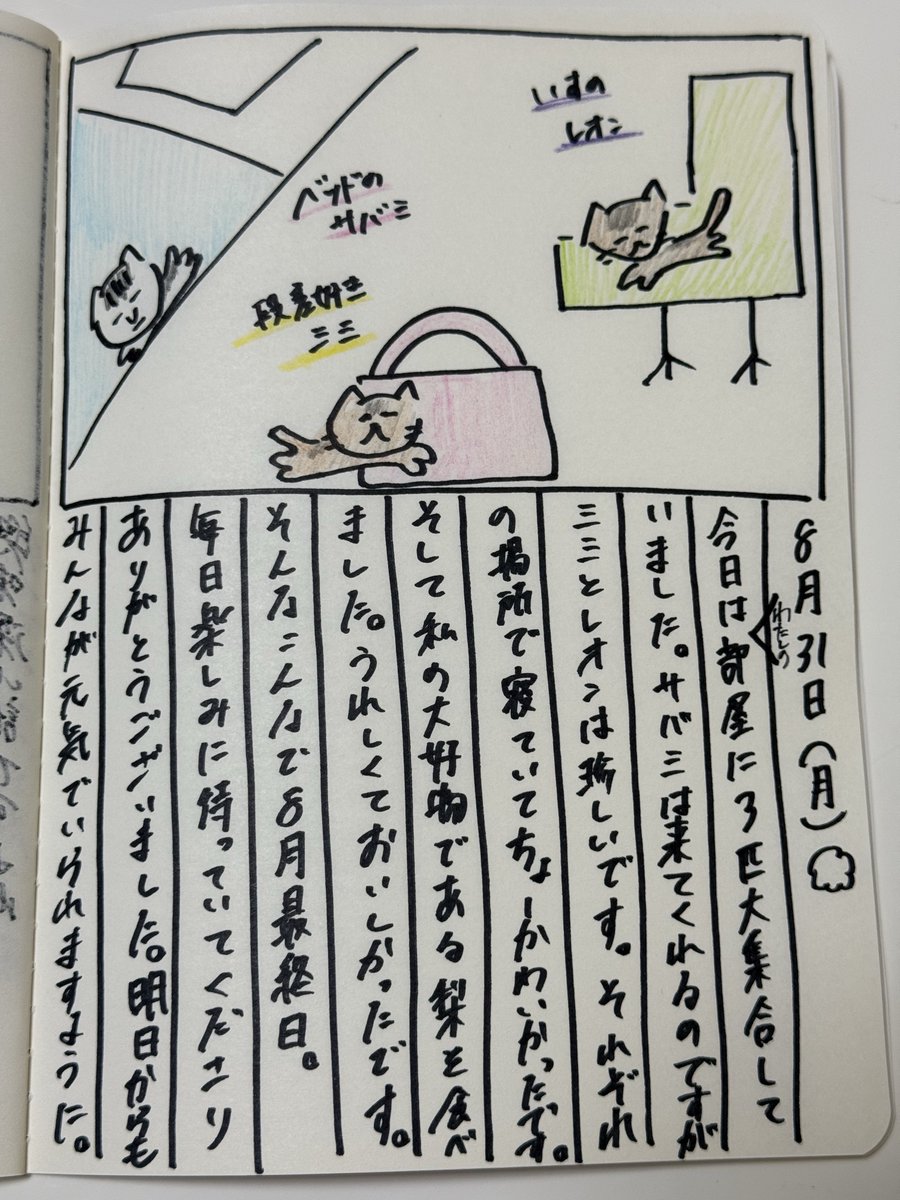 いすの
レオン
ベッドの
サバミ
段差好き
ミミ
8月31日(月)
今日はわたしの部屋に3匹大集合して
いました。サバミは来てくれるのですが
ミミとレオンは珍しいです。それぞれ
の場所で寝ていてちょーかわいかったです。
そして私の大好物である梨を食べ
ました。うれしくておいしかったです。
そんなこんなで8月最終日。
毎日楽しみに待っていてくださり
ありがとうございました。明日からも
みんなが元気でいられますように。